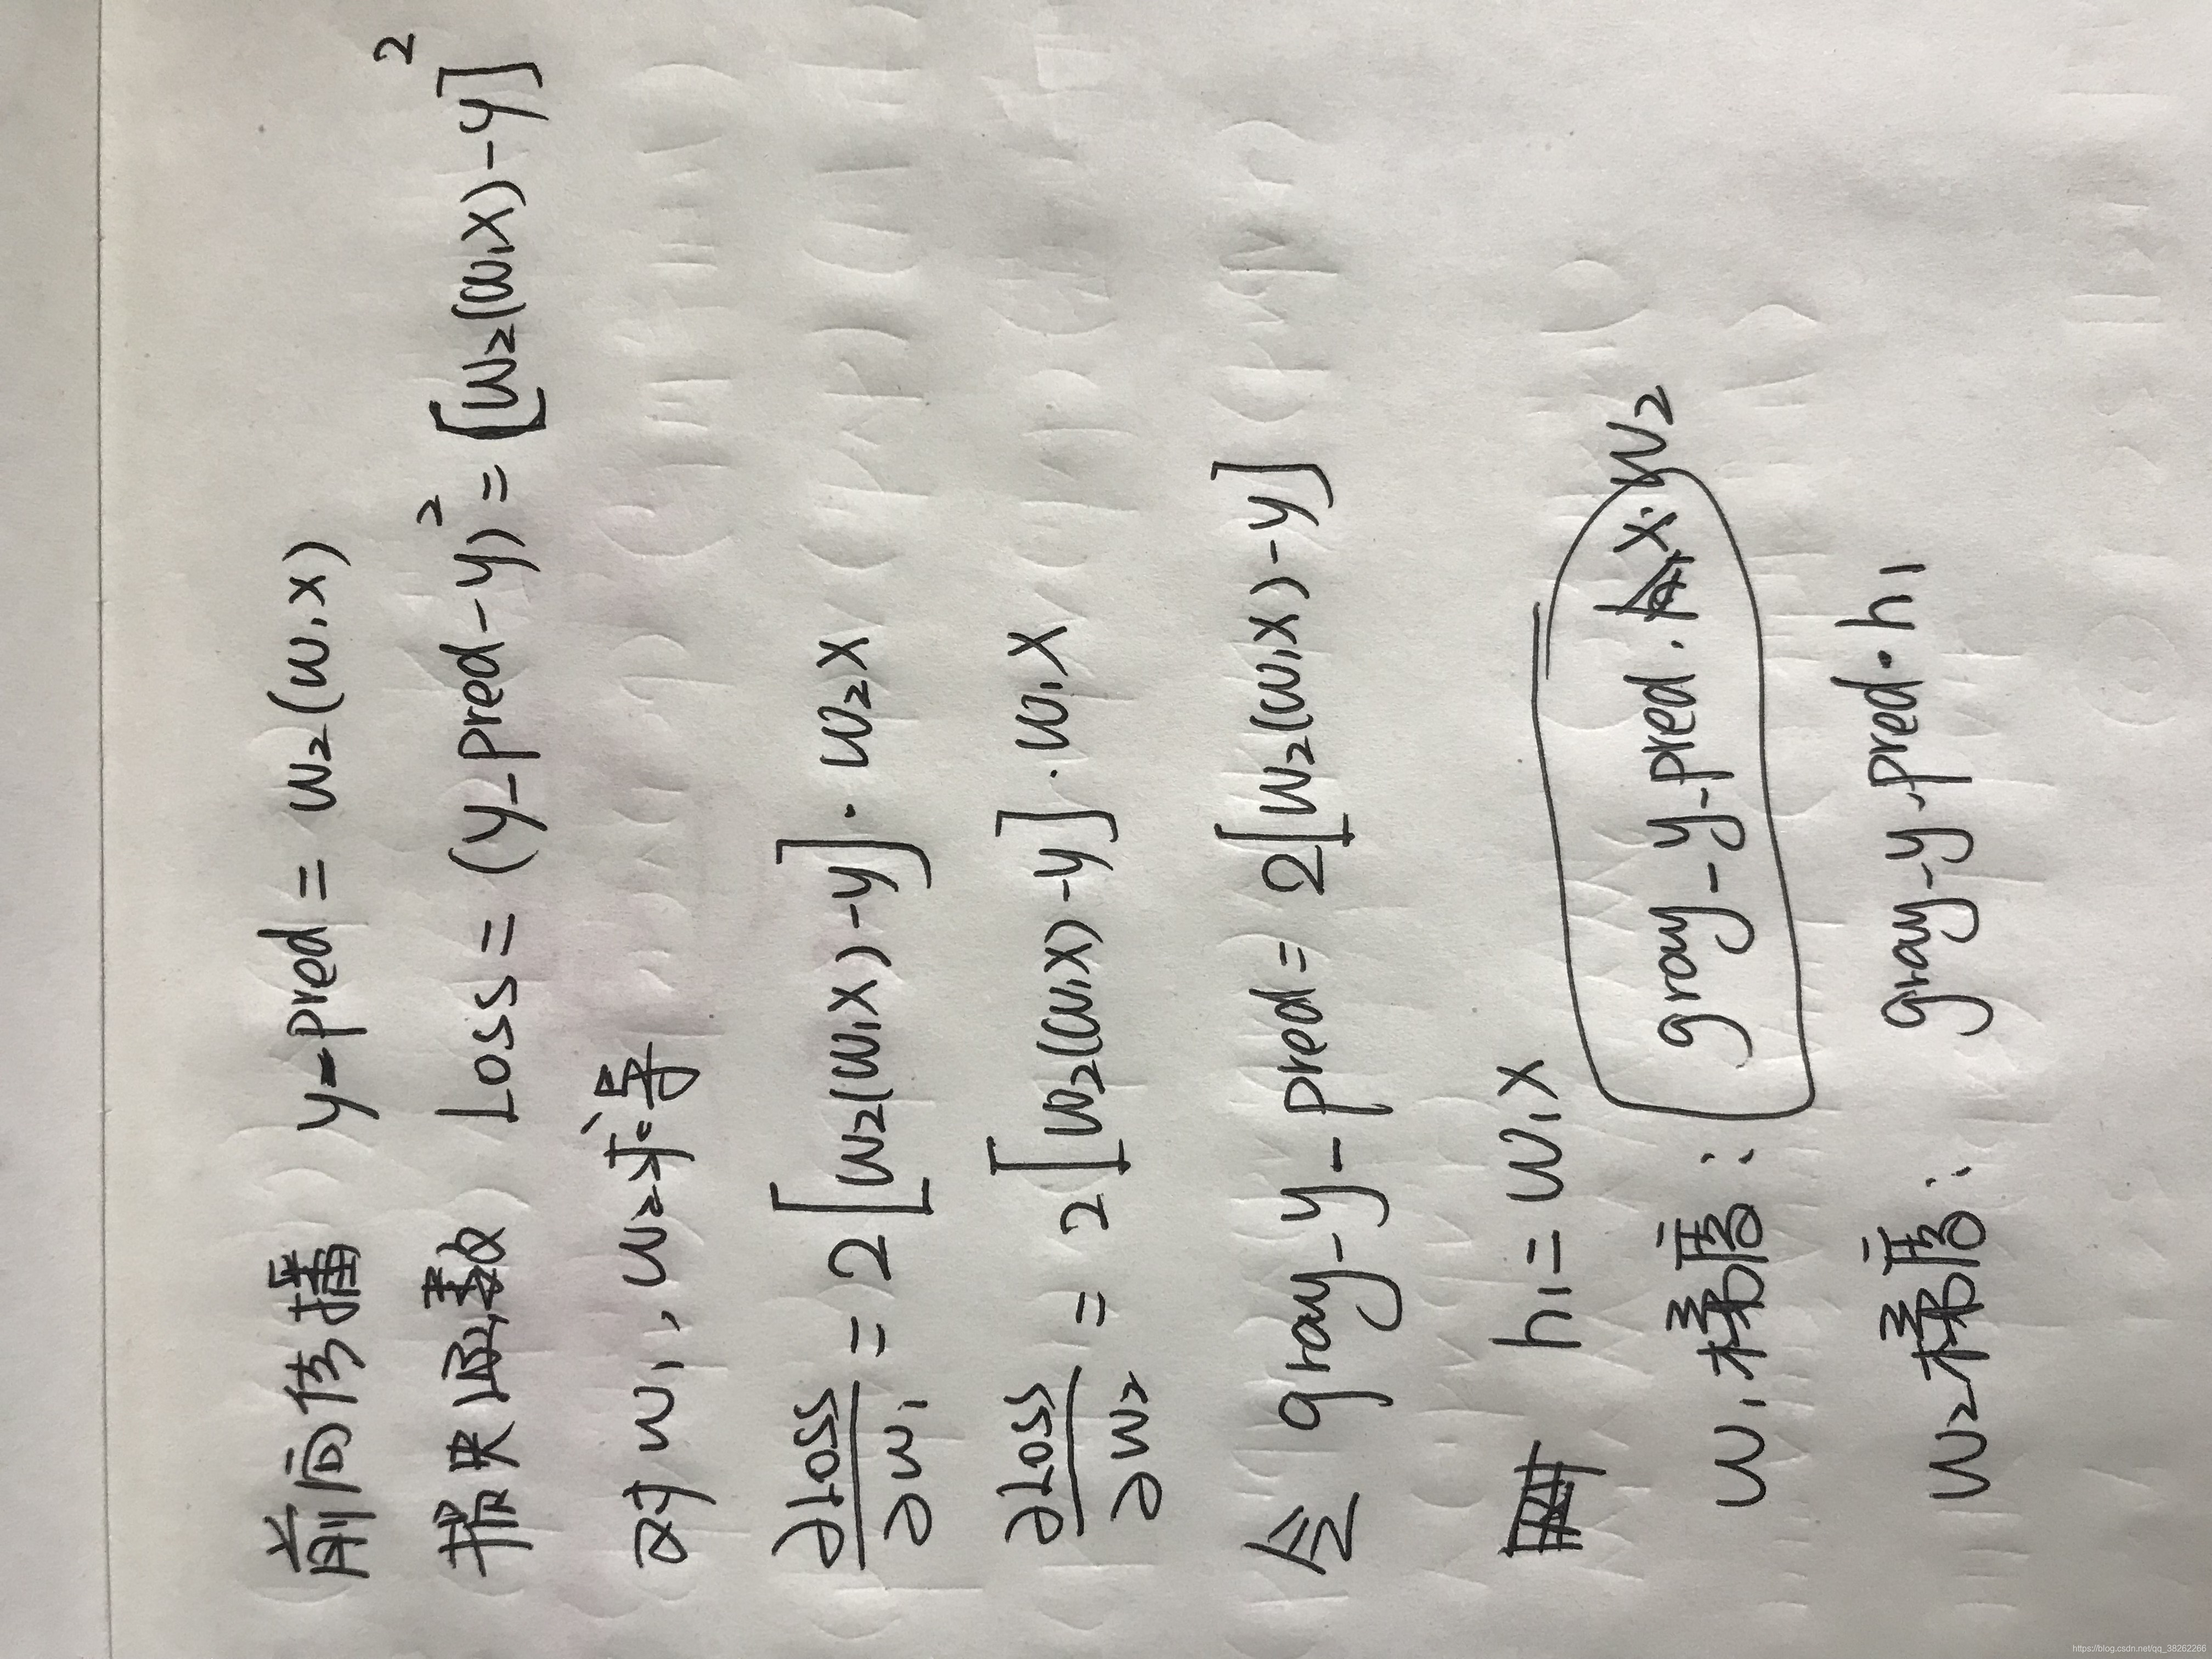 前向传播 y_pred = w₂(w₁x)
损失函数 Loss = (y_pred-y)² = [w₂(w₁x)-y]²
对w₁, w₂求导
∂Loss/∂w₁ = 2[w₂(w₁x)-y]·w₂x
∂Loss/∂w₂ = 2[w₂(w₁x)-y]·w₁x
令 gray-y-pred = 2[w₂(w₁x)-y]
h₁ = w₁x
w₁梯度: gray-y-pred·x·w₂
w₂梯度: gray-y-pred·h₁
https://blog.csdn.net/qq_38262266